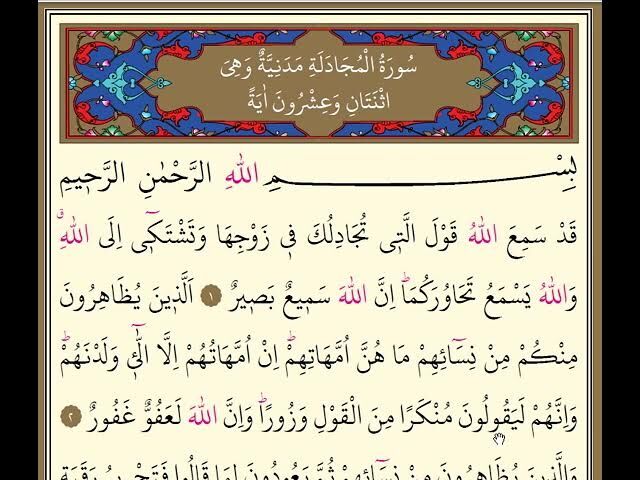 سُورَةُ الْمُجَادَلَةِ مَدَنِيَّةٌ وَهِيَ
اثْنَتَانِ وَعِشْرُونَ اٰيَةً
بِسْمِ اللّٰهِ الرَّحْمٰنِ الرَّح۪يمِ
قَدْ سَمِعَ اللّٰهُ قَوْلَ الَّت۪ي تُجَادِلُكَ ف۪ي زَوْجِهَا وَتَشْتَك۪ٓي اِلَى اللّٰهِۗ
وَاللّٰهُ يَسْمَعُ تَحَاوُرَكُمَاۜ اِنَّ اللّٰهَ سَم۪يعٌ بَص۪يرٌ ١ اَلَّذ۪ينَ يُظَاهِرُونَ
مِنْكُمْ مِنْ نِسَٓائِهِمْ مَا هُنَّ اُمَّهَاتِهِمْۜ اِنْ اُمَّهَاتُهُمْ اِلَّا الّٰٓئ۪ وَلَدْنَهُمْۜ
وَاِنَّهُمْ لَيَقُولُونَ مُنْكَرًا مِنَ الْقَوْلِ وَزُورًاۜ وَاِنَّ اللّٰهَ لَعَفُوٌّ غَفُورٌ ٢
وَالَّذ۪ينَ يُظَاهِرُونَ مِنْ نِسَٓائِهِمْ ثُمَّ يَعُودُونَ لِمَا قَالُوا فَتَحْر۪يرُ رَقَبَةٍ